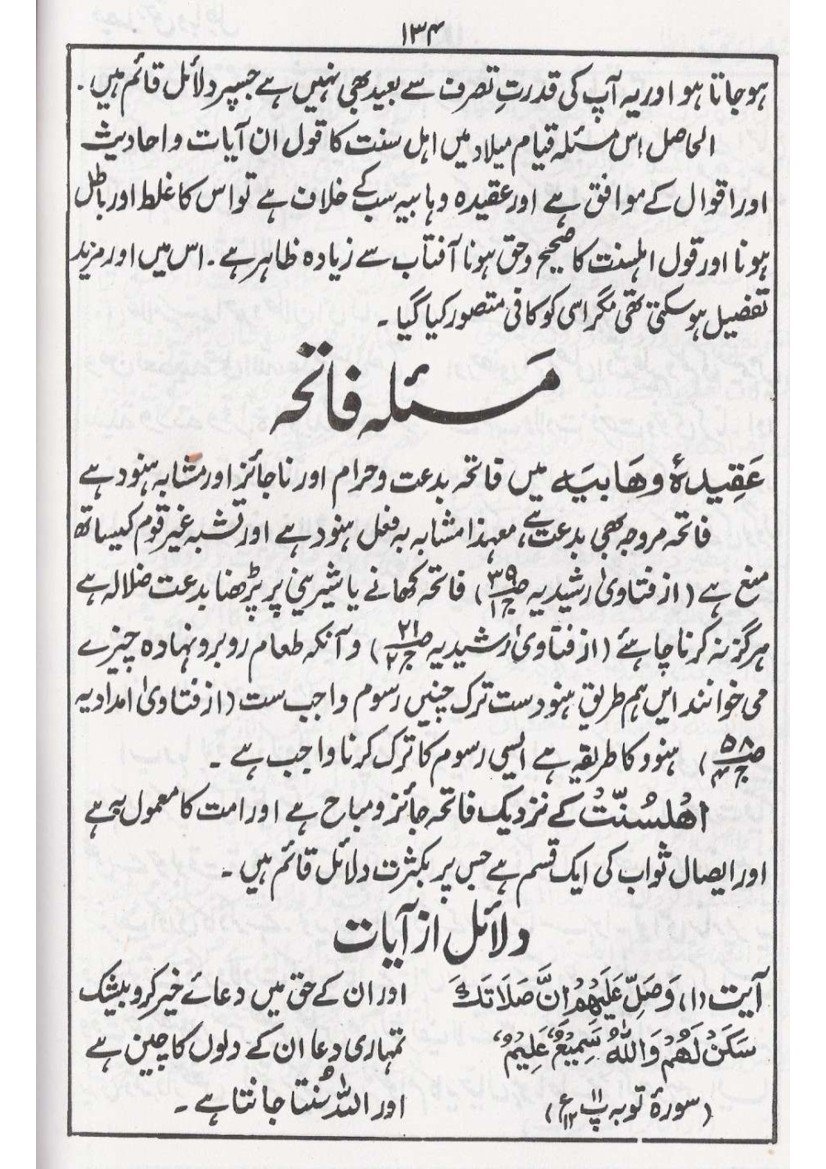 ۱۳۴
ہوجاتا ہو اور یہ آپ کی قدرتِ تصرف سے بعید بھی نہیں ہے جسپر دلائل قائم ہیں۔
الحاصل اس مسئلہ قیام میلاد میں اهل سنت کا قول ان آیات و احادیث
اور اقوال کے موافق ہے اور عقیدہ وہابیہ سب کے خلاف ہے تو اس کا غلط اور باطل
ہونا اور قول اہلسنت کا صحیح و حق ہونا آفتاب سے زیادہ ظاہر ہے۔ اس میں اور مزید
تفصیل ہو سکتی تھی مگر اسی کو کافی متصور کیا گیا۔
مسئلہ فاتحہ
عَقِیدۂ وهَابیَہ میں فاتحہ بدعت و حرام اور ناجائز اور مشابہ ہنود ہے
فاتحہ مروجہ بھی بدعت ہے، معہذا مشابہ بہ فعل ہنود ہے اور تشبہ غیر قوم کیساتھ
منع ہے (از فتاویٰ رشیدیہ ص۳۹ ج۱) فاتحہ کھانے یا شیرینی پر پڑھنا بدعت ضلالہ ہے
ہرگز نہ کرنا چاہئے (از فتاویٰ رشیدیہ ص۲۱ ج۲) و آنکہ طعام روبرو نہادہ چیزے
می خوانند ایں ہم طریق ہنود ست ترک چنیں رسوم واجب ست (از فتاویٰ امدادیہ
ص۵۸ ج۴) ہنود کا طریقہ ہے ایسی رسوم کا ترک کرنا واجب ہے۔
اهلسُنّتْ کے نزدیک فاتحہ جائز و مباح ہے اور امت کا معمول بہ ہے
اور ایصال ثواب کی ایک قسم ہے جس پر بکثرت دلائل قائم ہیں۔
دلائل از آیات
آیت (۱) وَصَلِّ عَلَیْهِمْ اِنَّ صَلَاتَكَ اور ان کے حق میں دعائے خیر کرو بیشک
سَكَنٌ لَّهُمْ وَاللّٰهُ سَمِیْعٌ عَلِیْمٌ تمہاری دعا ان کے دلوں کا چین ہے
(سورۂ توبہ پ۱۱ ع۱۲) اور اللہ سُنتا جانتا ہے۔